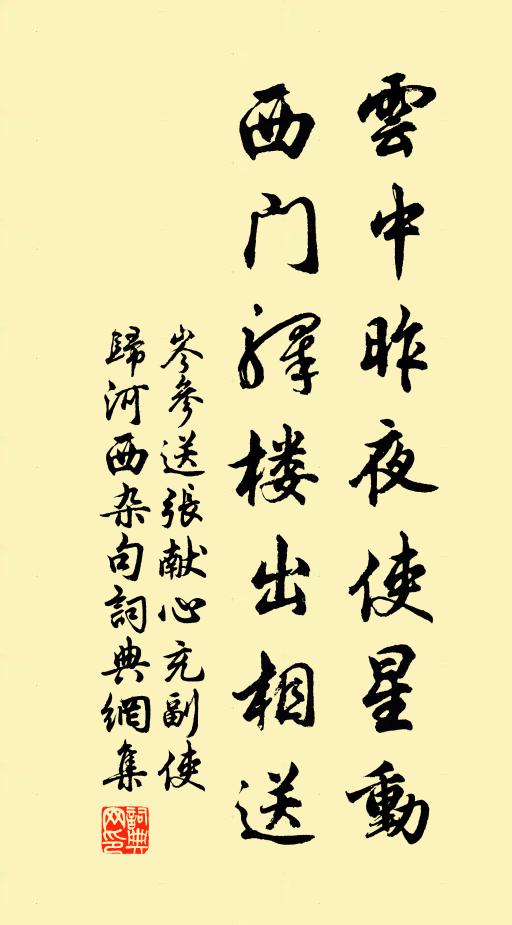 雲中昨夜使星動
西門驛楼出相送
岑參送張献心充副使
歸河西杂句詞典網集
詞典
网印